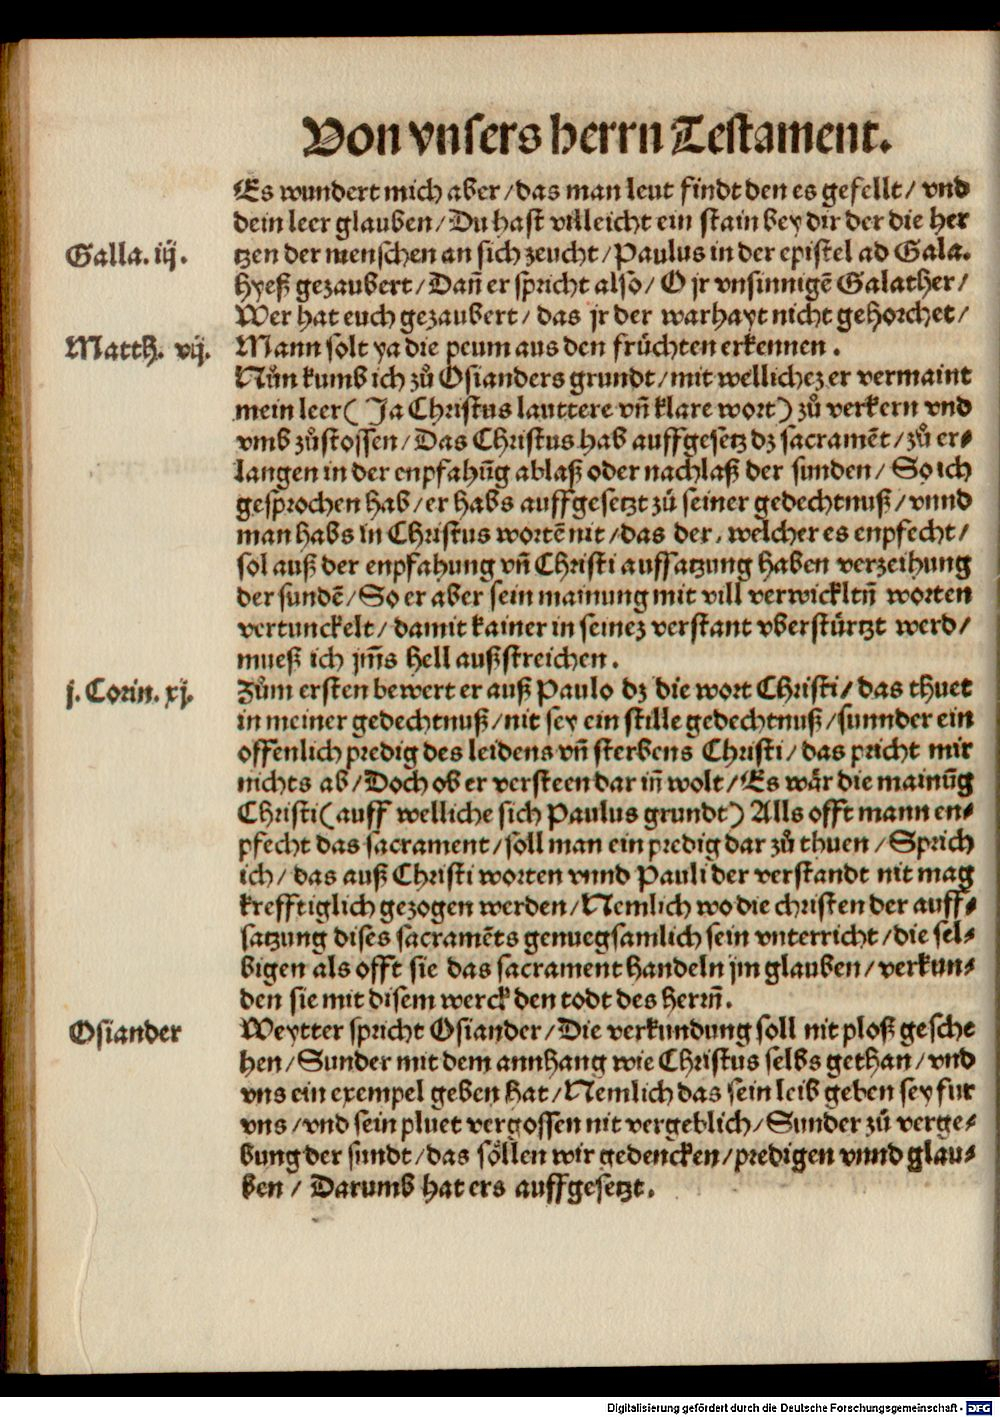 Von vnsers herrn Testament.
Es wundert mich aber/das man leut findt den es gefellt/ vnd
dein leer glauben/Du hast villeicht ein stain bey dir der die her
Galla. iij.
tzen der menschen an sich zeucht/Paulus in der epistel ad Gala.
hyeß gezaubert/Dañ er spricht also/ O jr vnsinnigẽ Galather/
Wer hat euch gezaubert/ das jr der warhayt nicht gehorchet/
Matth. vij.
Mann solt ya die peum aus den früchten erkennen.
Nůn kumb ich zů Osianders grundt/mit wellichez er vermaint
mein leer( Ja Christus lauttere vñ klare wort) zů verkern vnd
vmb zůstossen/Das Christus hab auffgesetz dz sacramẽt/zů er⸗
langen in der enpfahũg ablaß oder nachlaß der sunden/ So ich
gesprochen hab/er habs auffgesetzt zů seiner gedechtnuß/vnnd
man habs in Christus wortẽ nit/das der, welcher es enpfecht/
sol auß der enpfahung vñ Christi auffatzung haben verzeihung
der sundẽ/So er aber sein mainung mit vill verwickltñ worten
vertunckelt/damit kainer in seinez verstant vberstürtzt werd/
mueß ich jm̃s hell außstreichen.
j. Corin. xj.
Zům ersten bewert er auß Paulo dz die wort Christi/das thuet
in meiner gedechtnuß/nit sey ein stille gedechtnuß/sunnder ein
offenlich predig des leidens vñ sterbens Christi/das pricht mir
nichts ab/Doch ob er versteen dar iñ wolt/Es wår die mainũg
Christi(auff welliche sich Paulus grundt) Alls offt mann en⸗
pfecht das sacrament/soll man ein predig dar zů thuen/Sprich
ich/das auß Christi worten vnnd Pauli der verstandt nit mag
krefftiglich gezogen werden/Nemlich wo die christen der auff⸗
satzung dises sacramẽts genuegsamlich sein vnterricht/die sel⸗
bigen als offt sie das sacrament handeln jm glauben/verkun⸗
den sie mit disem werck den todt des herrñ.
Osiander
Weytter spricht Osiander/Die verkundung soll nit ploß gesche
hen/Sunder mit dem annhang wie Christus selbs gethan/vnd
vns ein exempel geben hat/Nemlich das sein leib geben sey fur
vns/vnd sein pluet vergossen nit vergeblich/Sunder zů verge⸗
bung der sundt/das söllen wir gedencken/predigen vnnd glau⸗
ben/ Darumb hat ers auffgesetzt.
Digitalisierung gefördert durch die Deutsche Forschungsgemeinschaft - DFG